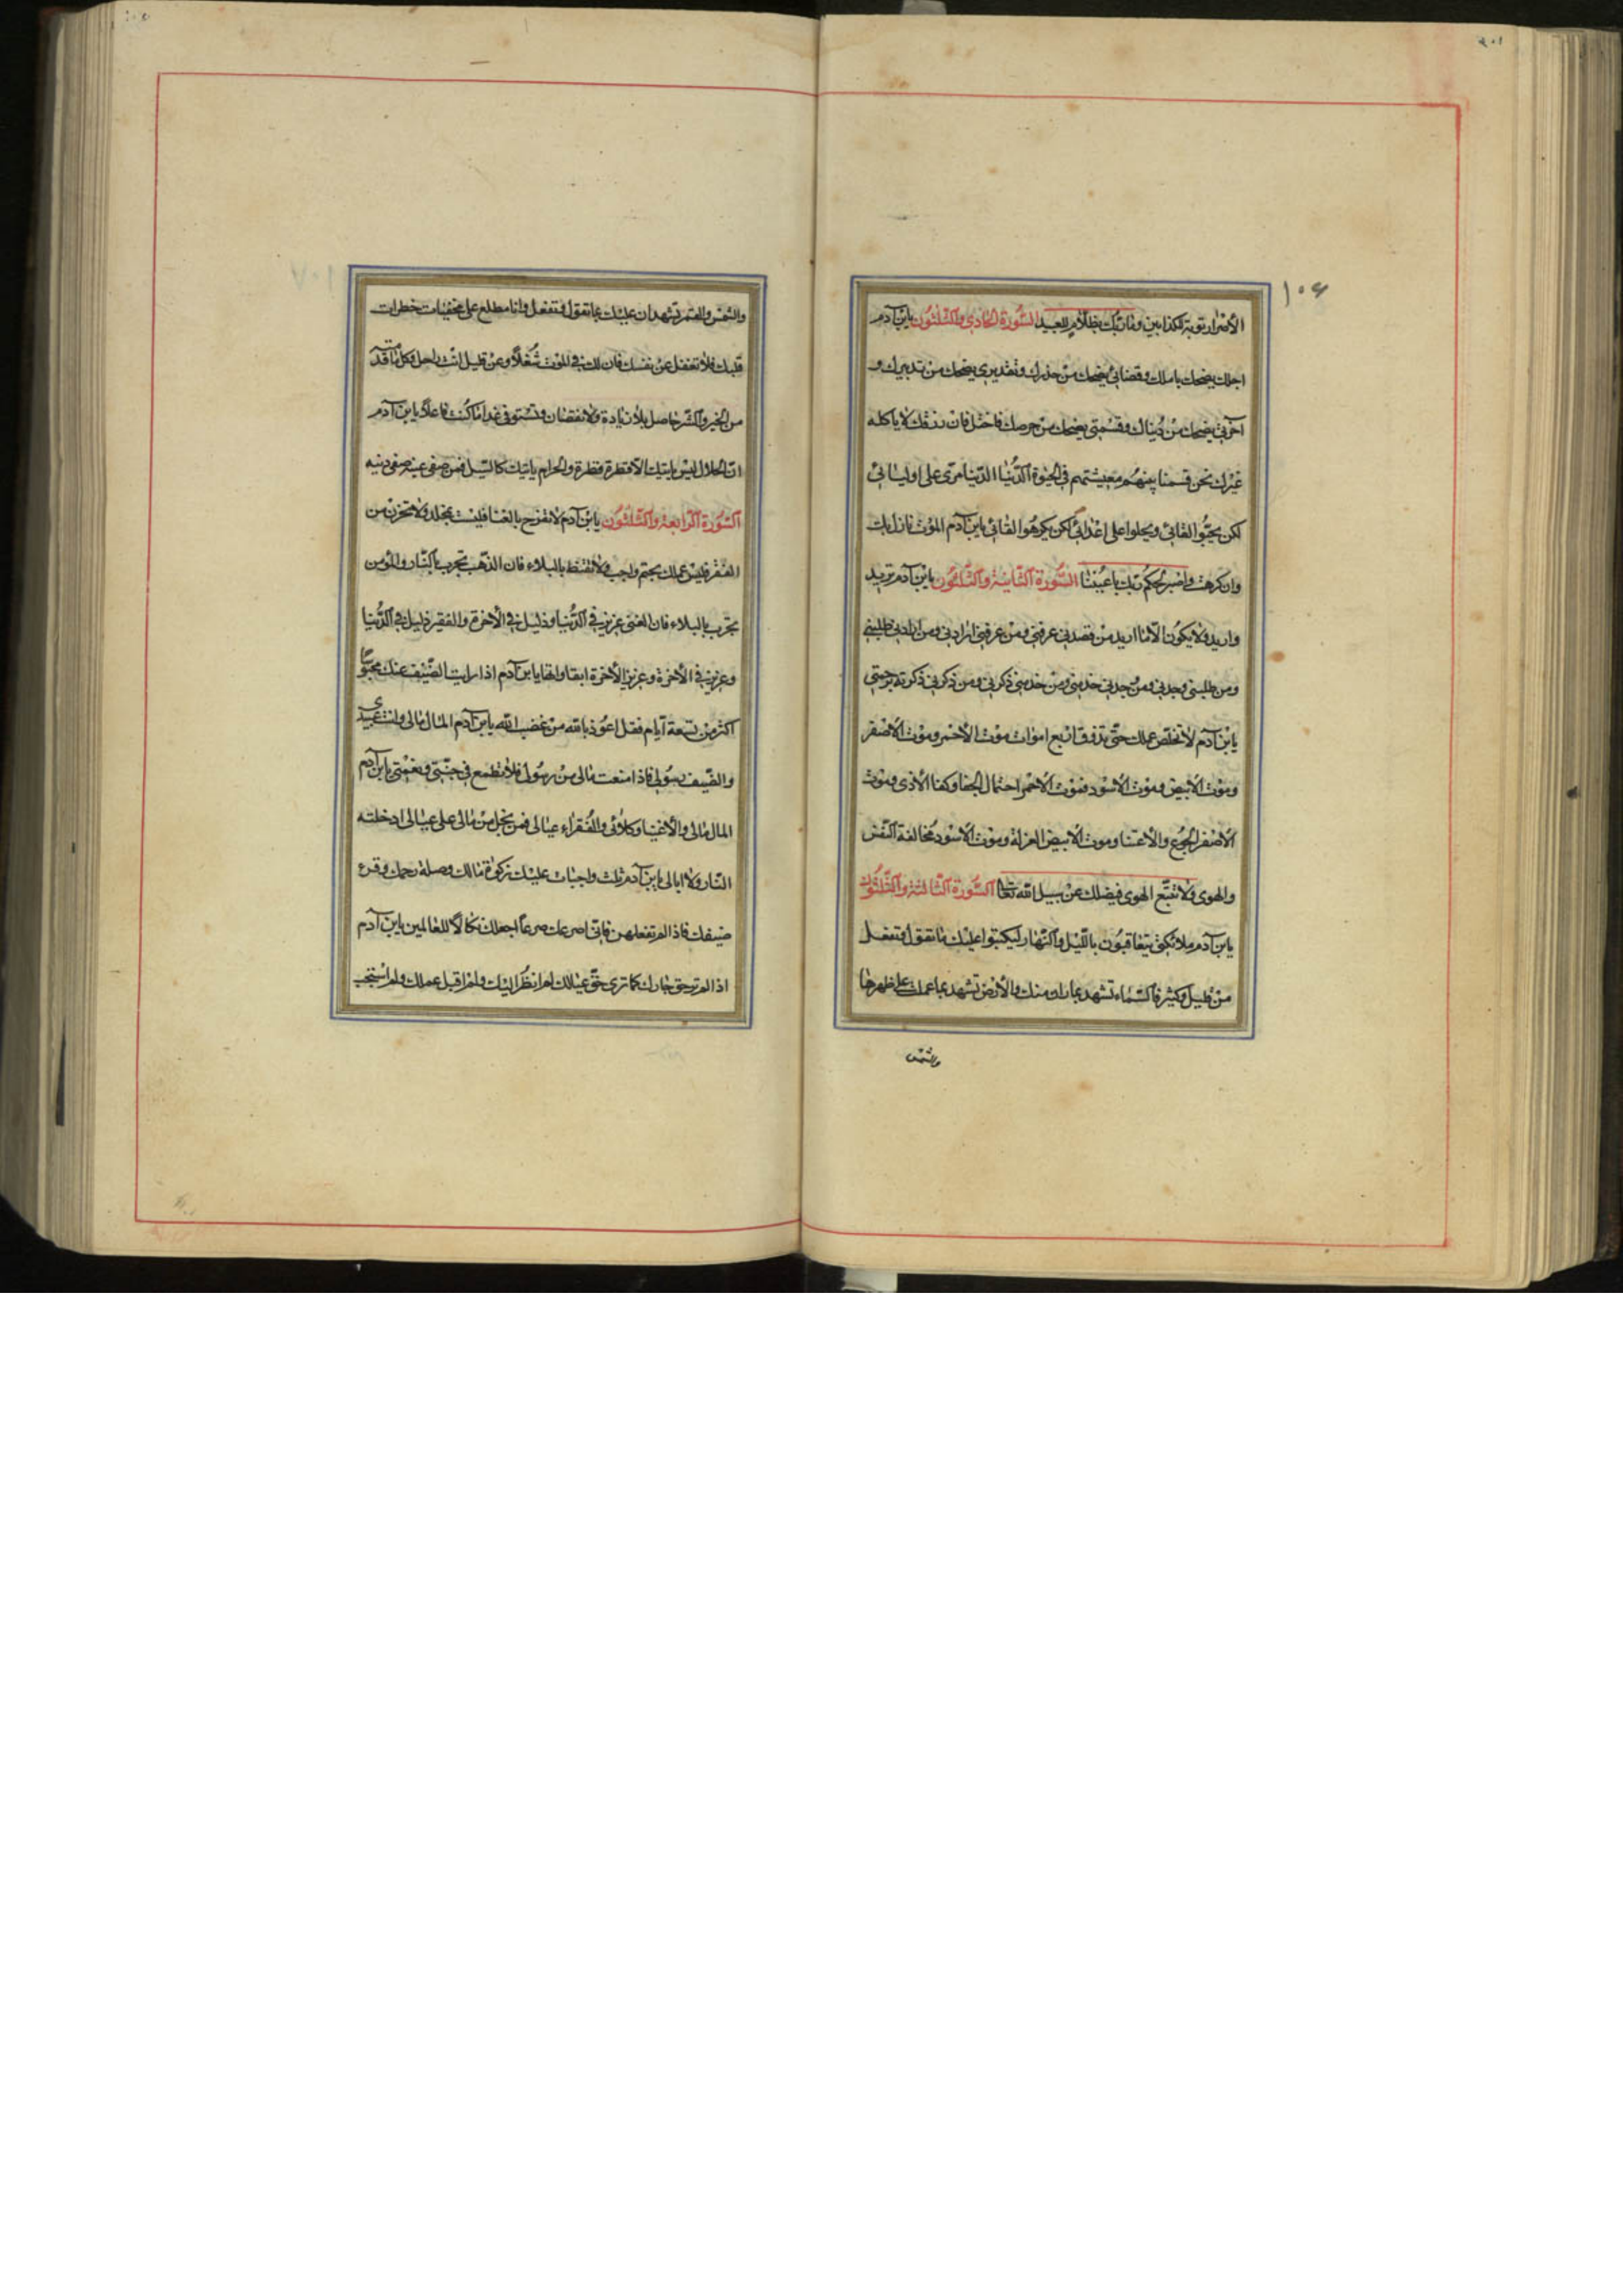 ١٠٦
الأضرار توبة الكذابين وما ربك بظلام للعبيد السورة الحادي والثلثون يا بن آدم
اجلك يضحك بأملك وقضائي يضحك من حذرك وتقديري يضحك من تدبيرك و
آخرتي يضحك من دنياك وقسمتي يضحك من حرصك فان رزقك لا يأكله
غيرك نحن قسمنا بينهم معيشتهم في الحيوة الدنيا الدنيا مرى على اوليائي
لكن يحبوا لقائي ويحلوا على اعدائي لكن يكرهوا لقائي يا بن آدم الموت نازل بك
وان كرهت واصبر لحكم ربك باعيننا السورة الثانية والثلثون يا بن آدم تريد
واريد ولا يكون الا ما اريد من قصدني عرفني ومن عرفني ارادني ومن ارادني طلبني
ومن طلبني وجدني ومن وجدني خدمني ومن خدمني ذكرني ومن ذكرني ذكرته برحمتي
يا بن آدم لا تخلص عملك حتى تذوق اربع اموات موت الأحمر وموت الأصفر
وموت الأبيض وموت الأسود فموت الأحمر احتمال الجفا وكف الأذى وموت
الأصفر الجوع والأعسا وموت الأبيض العزلة وموت الأسود مخالفة النفس
والهوى ولا تتبع الهوى فيضلك عن سبيل الله تعا السورة الثالثة والثلثون
يا بن آدم ملائكتي يتعاقبون بالليل والنهار ليكتبوا عليك ما تقول وتفعل
من قليل وكثير فالسماء تشهد بما رات منك والأرض تشهد بما عملت على ظهرها
والشمس
والشمس والقمر تشهدان عليك بما تقول وتفعل وانا مطلع على مخفيات خطرات
قلبك فلا تغفل عن نفسك فان لك في الموت شغلا وعن قليل انت راحل وكل ما قدمته
من الخير والشر حاصل بلا زيادة ولا نقصان وتستوفى غدا ما كنت فاعلا يا بن آدم
ان الحلال ليس يأتيك الا قطرة قطرة والحرام يأتيك كالسيل فمن صفى عيشه صفى دينه
السورة الرابعة والثلثون يا بن آدم لا تفرح بالغنا فليست بمخلد ولا تحزن من
الفقر فليس عليك بحتم واجب ولا تقنط بالبلاء فان الذهب تجرب بالنار والمؤمن
تجرب بالبلاء فان الغنى عزيز في الدنيا وذليل في الأخرة والفقير ذليل في الدنيا
وعزيز في الأخرة وعزيز الأخرة ابقا وابها يا بن آدم اذا رايت الضيف عندك محبوسا
اكثر من تسعة ايام فقل اعوذ بالله من غضب الله يا بن آدم المال مالي وانت عبدي
والضيف رسولي فاذا منعت مالي من رسولي فلا تطمع في جنتي ونعمتي يا بن آدم
المال مالي والأغنيا وكلائي والفقراء عيالي فمن بخل من مالي على عيالي ادخلته
النار ولا ابالي يا بن آدم ثلث واجبات عليك زكوة مالك وصلة رحمك وقرء
ضيفك فاذا لم تفعلهن فاني اصرعك صرعا اجعلك نكالا للعالمين يا بن آدم
اذا لم تر حق جارك كما ترى حق عيالك لم انظر اليك ولم اقبل عملك ولم استجب